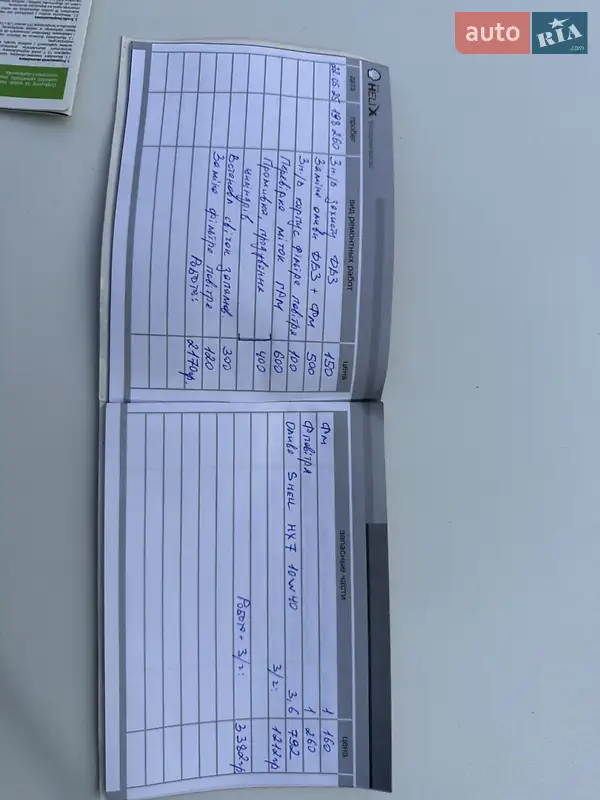 auto RIA .com
HELIX
дата
пробег
вид ремонтных работ
цена
22.05.25 198 260 Зн/в захисту ДВЗ 150
Заміна оливи ДВЗ + ФМ 500
Зн/в корпус фільтра повітря 100
Перевірка міток ГРМ 600
Промивка, продування
циліндрів 400
Встановл свічок запалюв. 300
Заміна фільтра повітря 120
Робота: 2170гр.
запасные части
цена
ФМ 1 160
Ф повітря 1 260
Олива SHELL HX7 10W40 3,6 792
З/ч: 1212гр
Робота + З/ч: 3382гр